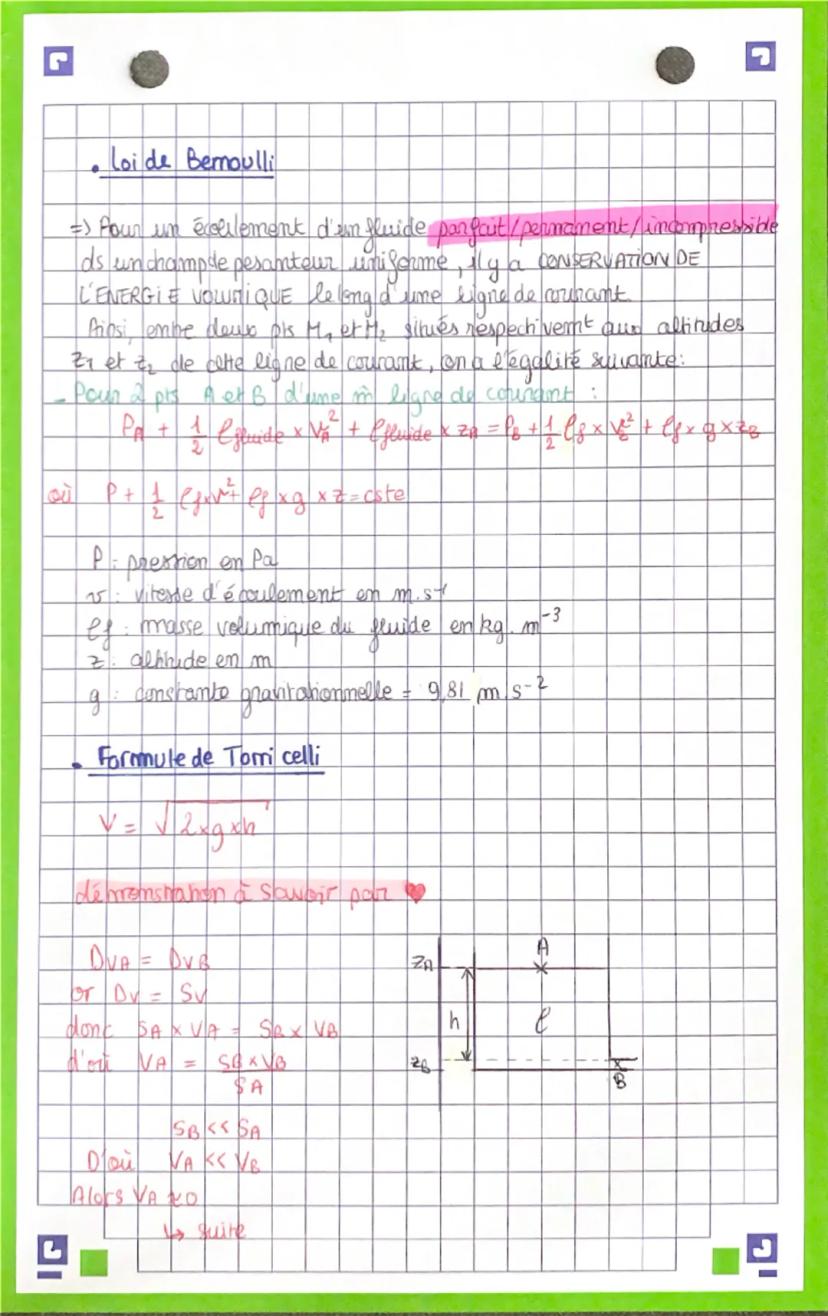 . Loi de Bernoulli
=> Pour un écoulement d'un fluide parfait/permanent/incompressible
ds un champ de pesanteur uniforme, il y a CONSERVATION DE
L'ENERGIE VOLUMIQUE le long d'une ligne de courant.
Ainsi, entre deux pts M₁ et M₂ situés respectivemt aux altitudes
z₁ et z₂ de cette ligne de courant, on a l'égalité suivante :
- Pour 2 pts A et B d'une m̂ ligne de courant :
P_A + 1/2 ρ_fluide × V_A² + ρ_fluide × z_A = P_B + 1/2 ρ_f × V_B² + ρ_f × g × z_B
où P + 1/2 ρ_f × v² + ρ_f × g × z = cste
P : pression en Pa
v : vitesse d'écoulement en m.s⁻¹
ρ_f : masse volumique du fluide en kg.m⁻³
z : altitude en m
g : constante gravitationnelle = 9,81 m.s⁻²
. Formule de Torricelli
V = √(2×g×h)
démonstration à savoir par ♥
D_VA = D_VB
or D_V = SV
donc S_A × V_A = S_B × V_B
d'où V_A = (S_B × V_B)/S_A
S_B << S_A
D'où V_A << V_B
Alors V_A ≈ 0
↳ suite
A
z_A
h
ρ
z_B
B